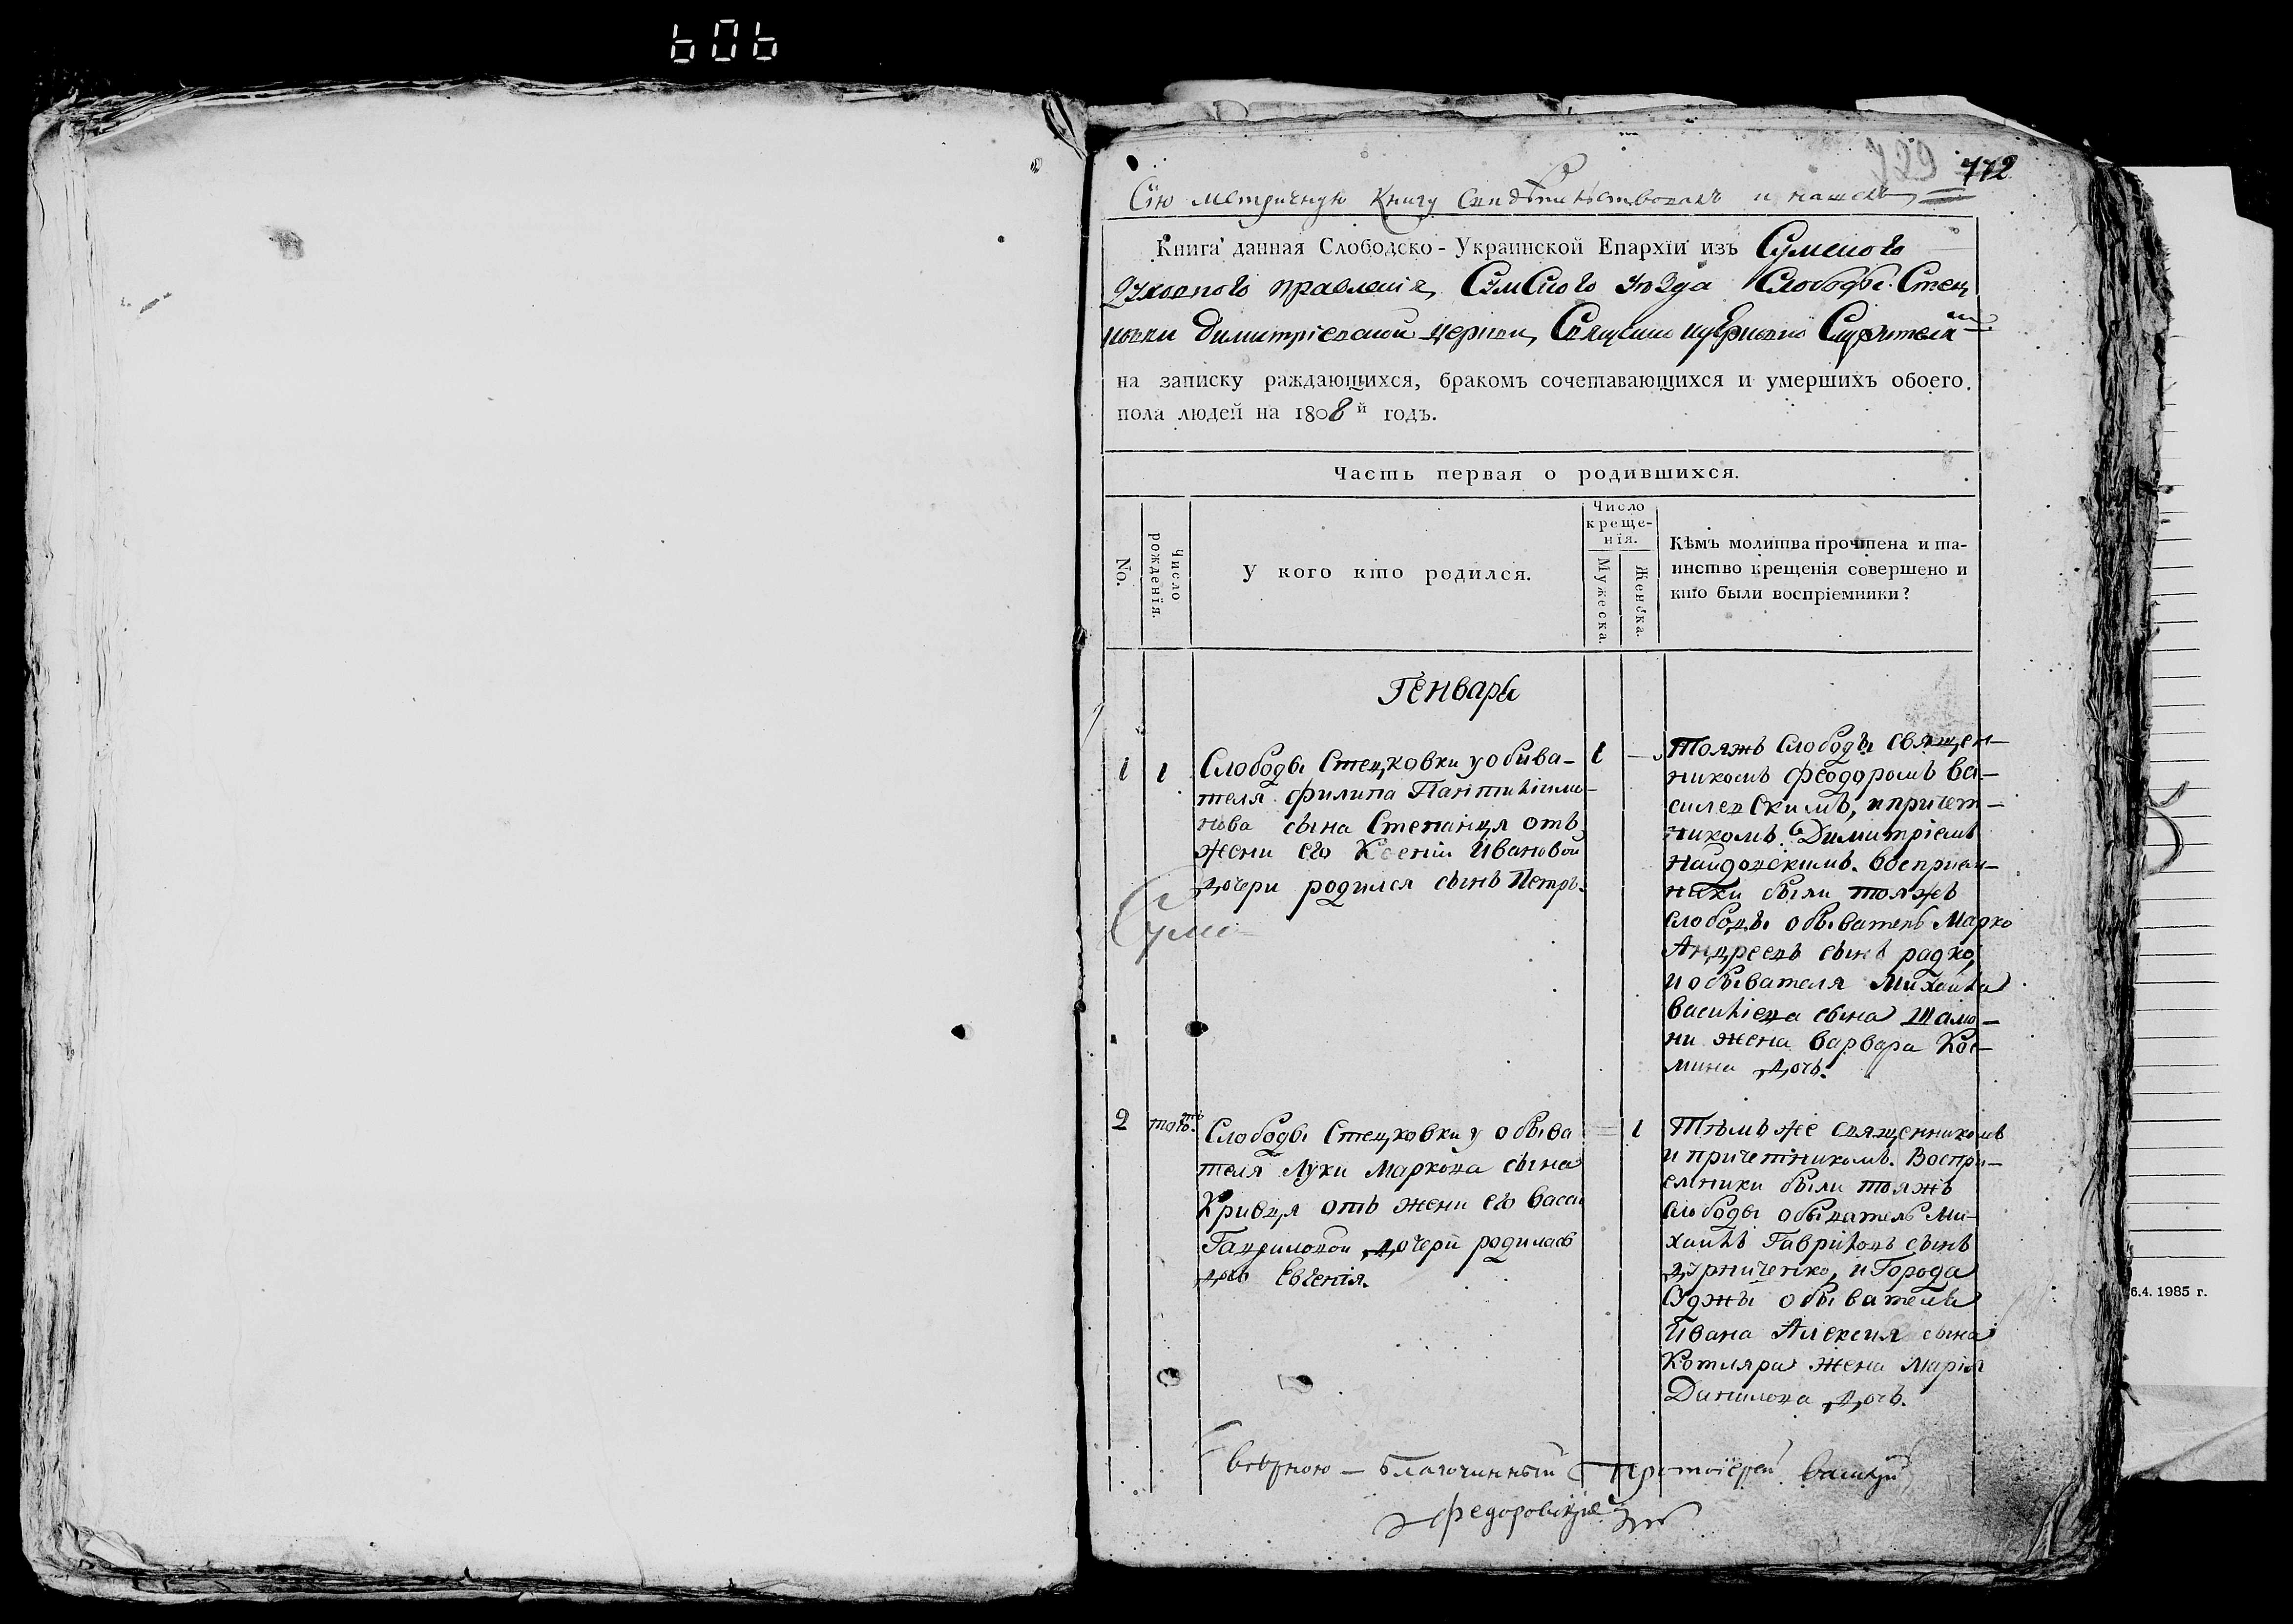 606
729 772
Сію метричную Книгу Свидѣтельствовалъ и нашелъ
Книга данная Слободско-Украинской Епархїи изъ Сумского
духовного правленія, Сумского уѣзда Слободы Стец
ковки Димитріевской церкви, Священно и церковно Служителямъ
на записку раждающихся, бракомъ сочетавающихся и умершихъ обоего
пола людей на 1808й годъ.
Часть первая о родившихся.
No.
Число рожденїя.
У кого кто родился.
Число
креще-
нїя.
Мужеска.
Женска.
Кѣмъ молитва прочтена и та-
инство крещенїя совершено и
кто были воспрїемники?
Генварь
1 1
Слободы Стецковки у обива-
теля Филипа
сына Степанця отъ
жени его Ксеніи Ивановой
дочери родился сынъ Петръ.
1 —
тояжъ Слободы священ-
никомъ Феодоромъ Ва-
силевскимъ, и причет-
никомъ Димитріемъ
Найдовскимъ. восприем-
ники были тояжъ
слободы обыватель Марко
Андреевъ сынъ радко,
и обывателя Михаила
василіева сына Шамо-
ни жена Варвара Кос-
мина дочь.
Суми
2 тогожъ
Слободы Стецковки у обыва
теля Луки Маркова сына
Кривця отъ жени его Васси
Гавриловой дочери родилась
дочь Евгенія.
— 1
Тѣмъ же священникомъ
и причетникомъ. Воспри-
емники были тояжъ
слободы обыватель Ми-
хаилъ Гавриловъ сынъ
дурниченко, и Города
Суджы обывателя
Ивана Алексія сына
Котляра жена Марія
Данилова дочь.
вѣрною — Благочинный Протоїерей Василій
Федоровскій
6.4. 1985 г.